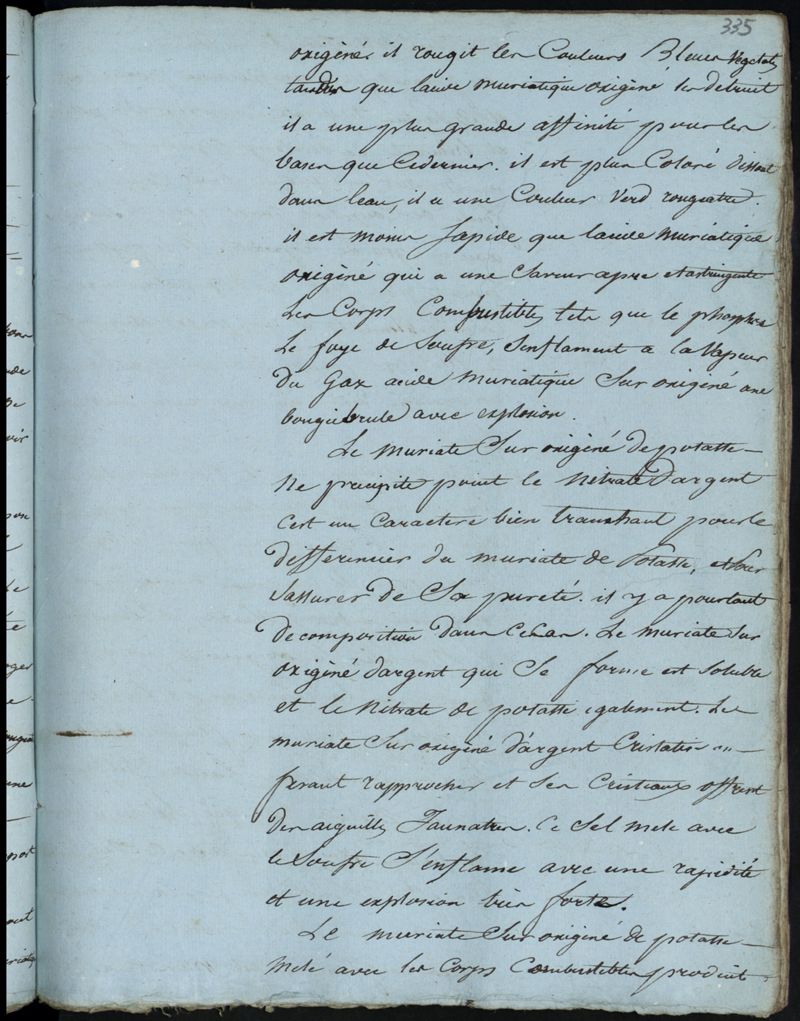 335
oxigéné, il rougit les Couleurs Bleues vegetales
tandis que lacide muriatique oxigéné les detruit
il a une plus grande affinité pour les
bases que Cedernier. il est plus Coloré dissout
dans leau, il a une Couleur Verd rougeatre.
il est moins Sapide que lacide muriatique
oxigéné qui a une Saveur apre et astringente
Les Corps Combustibles, tels que le phosphre
Le foye de Soufre, Senflament a la Vapeur
du Gaz acide muriatique Sur oxigéné une
bougie brule avec explosion.
Le muriate Sur oxigéné de potasse
Ne precipite point le Nitrate Dargent
Cest un Caractere bien tranchant pour le
differencier du muriate de Potasse, et pour
Sassurer de Sa pureté. il y a pourtant
Decomposition dans Ce Cas. Le muriate Sur
oxigéné dargent qui Se forme est soluble
et le Nitrate de potasse egalement. Le
muriate Sur oxigéné d'argent Cristalise en
fesant rapprocher et Ses Cristaux offrent
Des aiguilles Jaunatres. Ce Sel mele avec
le Soufre S'enflame avec une rapidité
et une explosion bien forte.
Le muriate Sur oxigéné de potasse
melé avec les Corps Combustibles produit